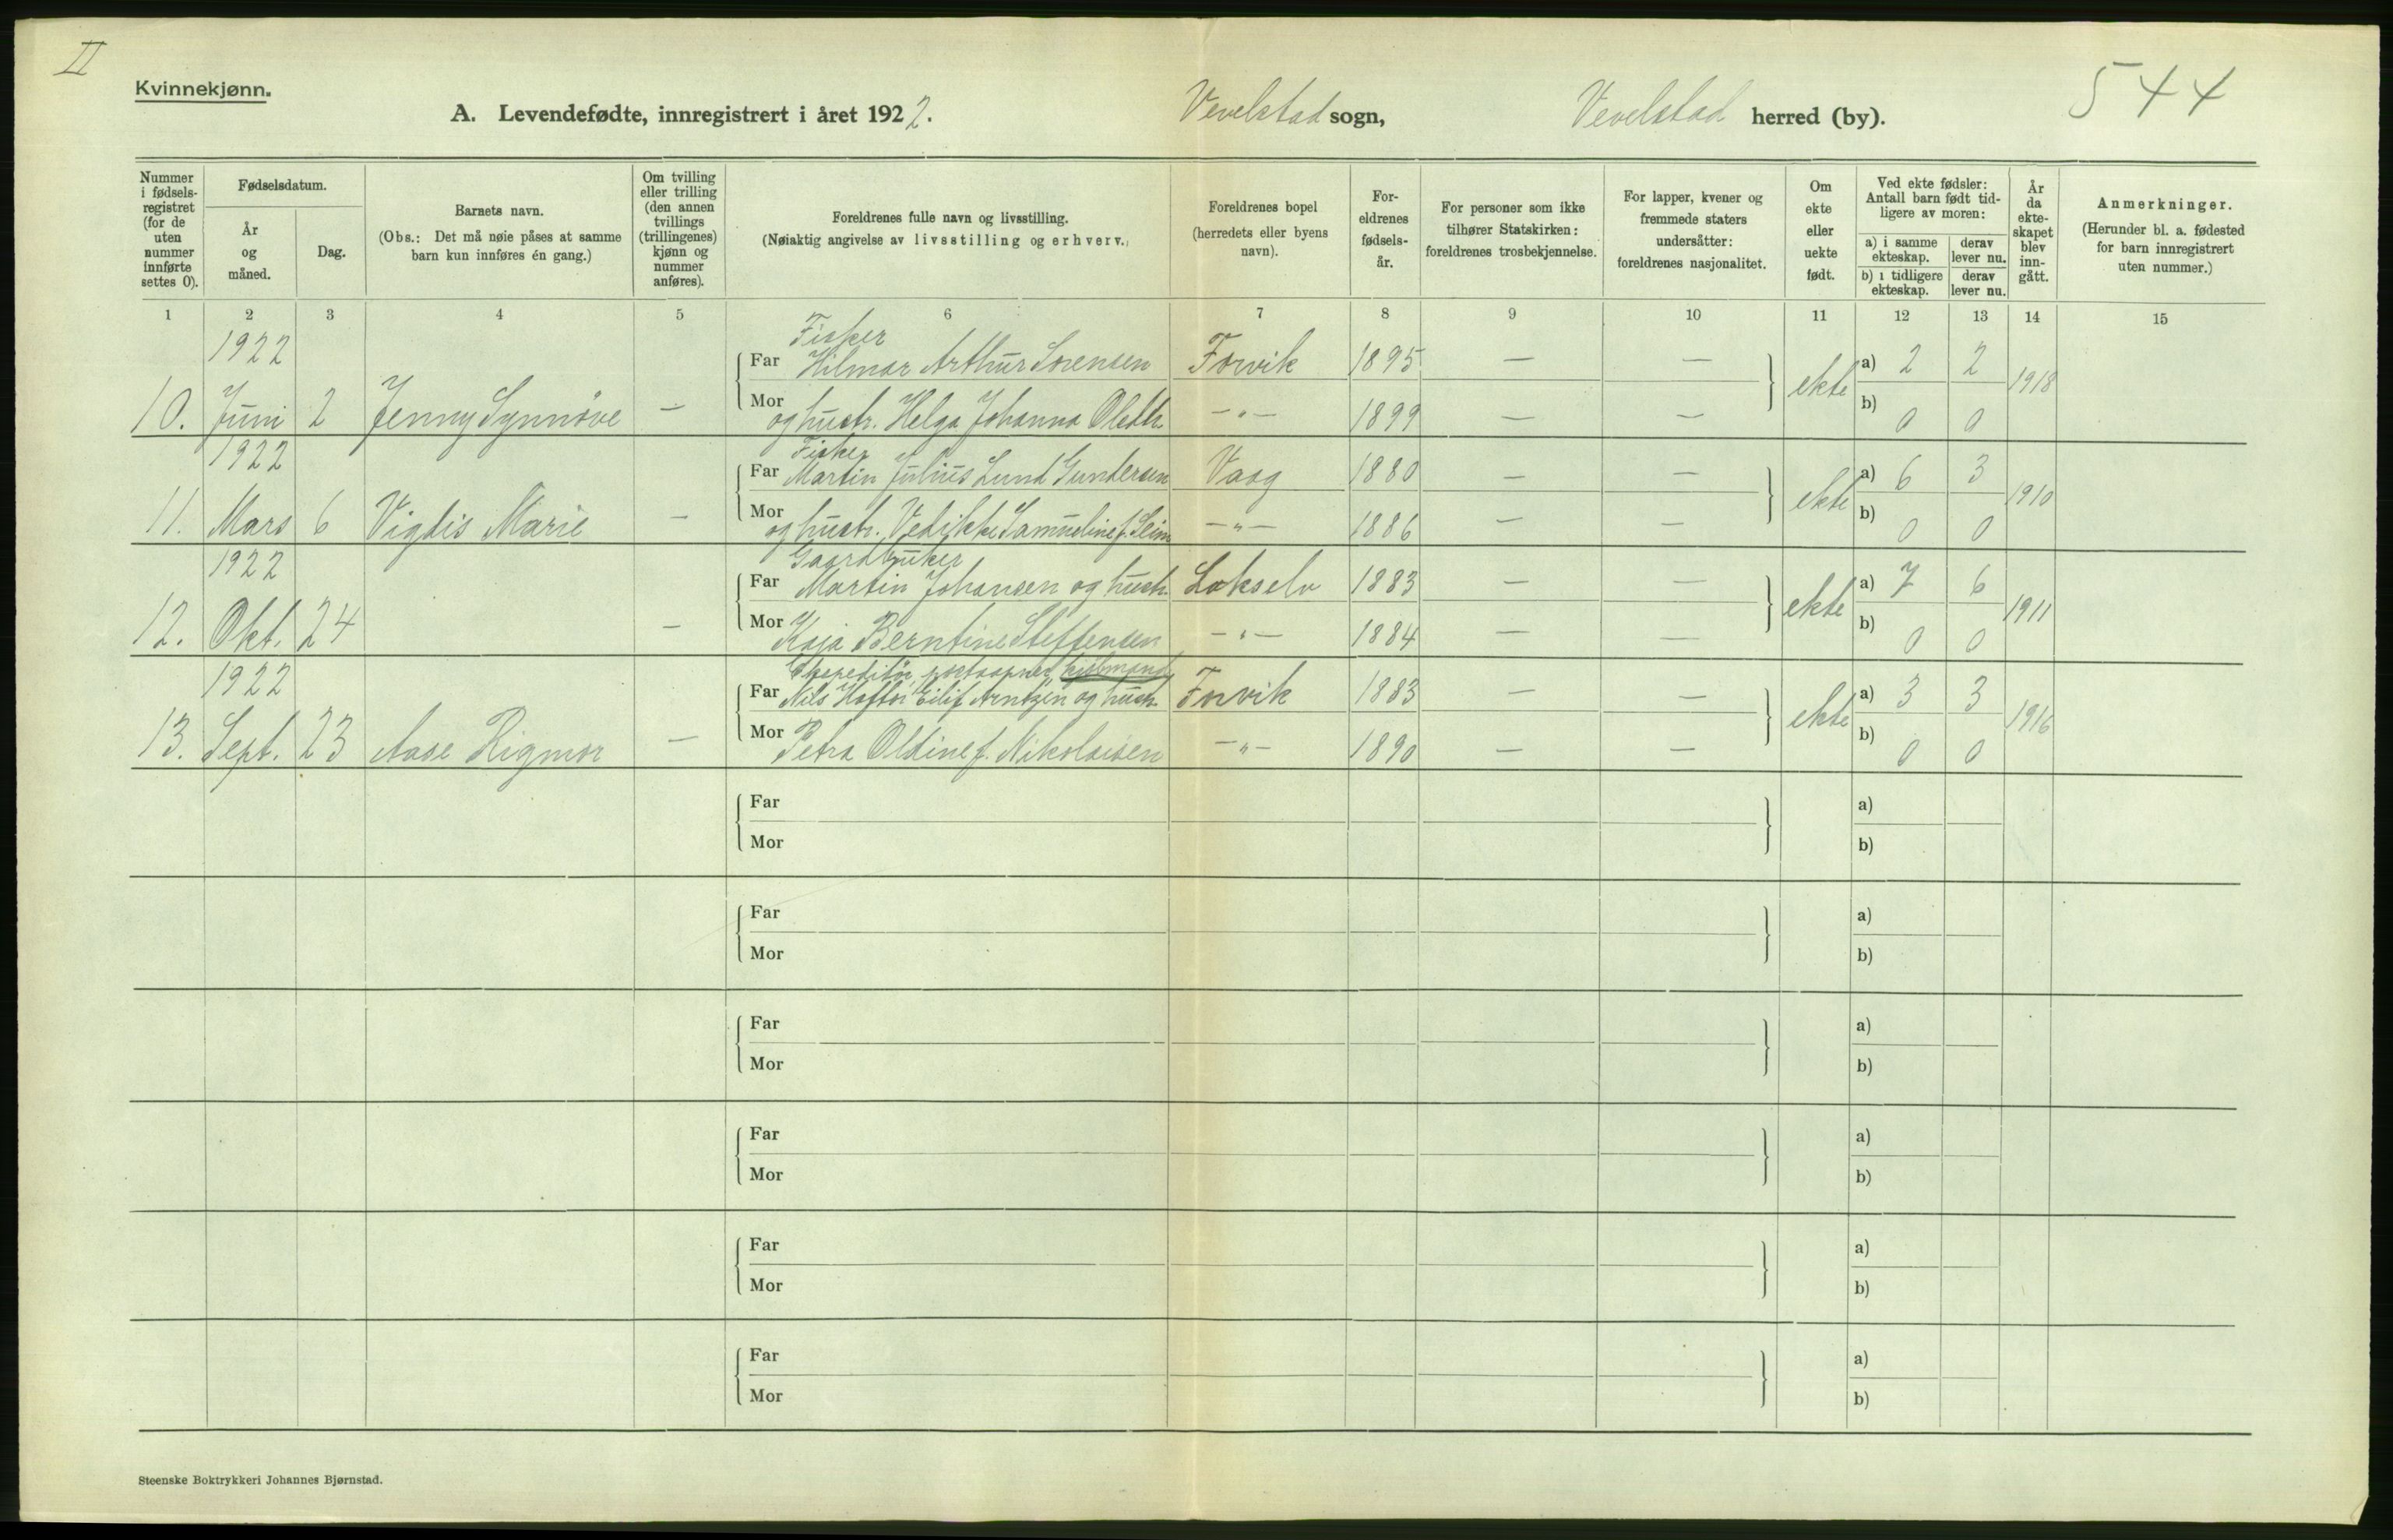 II
Kvinnekjønn.
544
A. Levendefødte, innregistrert i året 1922. Vevelstad sogn, Vevelstad herred (by).
Nummer i fødsels-registret (for de uten nummer innførte settes 0).
Fødselsdatum.
År og måned.
Dag.
Barnets navn.
(Obs.: Det må nøie påses at samme barn kun innføres én gang.)
Om tvilling eller trilling (den annen tvillings (trillingenes) kjønn og nummer anføres).
Foreldrenes fulle navn og livsstilling.
(Nøiaktig angivelse av livsstilling og erhverv.)
Foreldrenes bopel (herredets eller byens navn).
For-eldrenes fødsels-år.
For personer som ikke tilhører Statskirken: foreldrenes trosbekjennelse.
For lapper, kvener og fremmede staters undersåtter: foreldrenes nasjonalitet.
Om ekte eller uekte født.
Ved ekte fødsler: Antall barn født tid-ligere av moren:
a) i samme ekteskap.
derav lever nu.
b) i tidligere ekteskap.
derav lever nu.
År da ekte-skapet blev inn-gått.
Anmerkninger.
(Herunder bl. a. fødested for barn innregistrert uten nummer.)
1 2 3 4 5 6 7 8 9 10 11 12 13 14 15
1922 Fisker
Far Hilmar Arthur Sorensen Forvik 1895 — — a) 2 2
10. Juni 2 Jenny Synnöve — Mor og hustr. Helga Johanna Oledtr. —"— 1899 — — ekte b) 0 0 1918
1922 Fisker
Far Martin Julius Lund Gundersen Vaag 1880 — — a) 6 3
11. Mars 6 Vigdis Marie — Mor og hustr. Vedikke Samueline f. Leim —"— 1886 — — ekte b) 0 0 1910
1922 Gaardbruker
Far Martin Johansen og hustr. Lakselv 1883 — — a) 7 6
12. Okt. 24 — Mor Kaja Berntine Steffensen —"— 1884 — — ekte b) 0 0 1911
1922 Ekspeditör, postaapner, kjöbmand
Far Nils Eilif Arntzen og hustr. Forvik 1883 — — a) 3 3
13. Sept. 23 Aase Rigmor — Mor Petra Oldine f. Nikolaisen —"— 1890 — — ekte b) 0 0 1916
Far a)
Mor b)
Far a)
Mor b)
Far a)
Mor b)
Far a)
Mor b)
Far a)
Mor b)
Far a)
Mor b)
Steenske Boktrykkeri Johannes Bjørnstad.